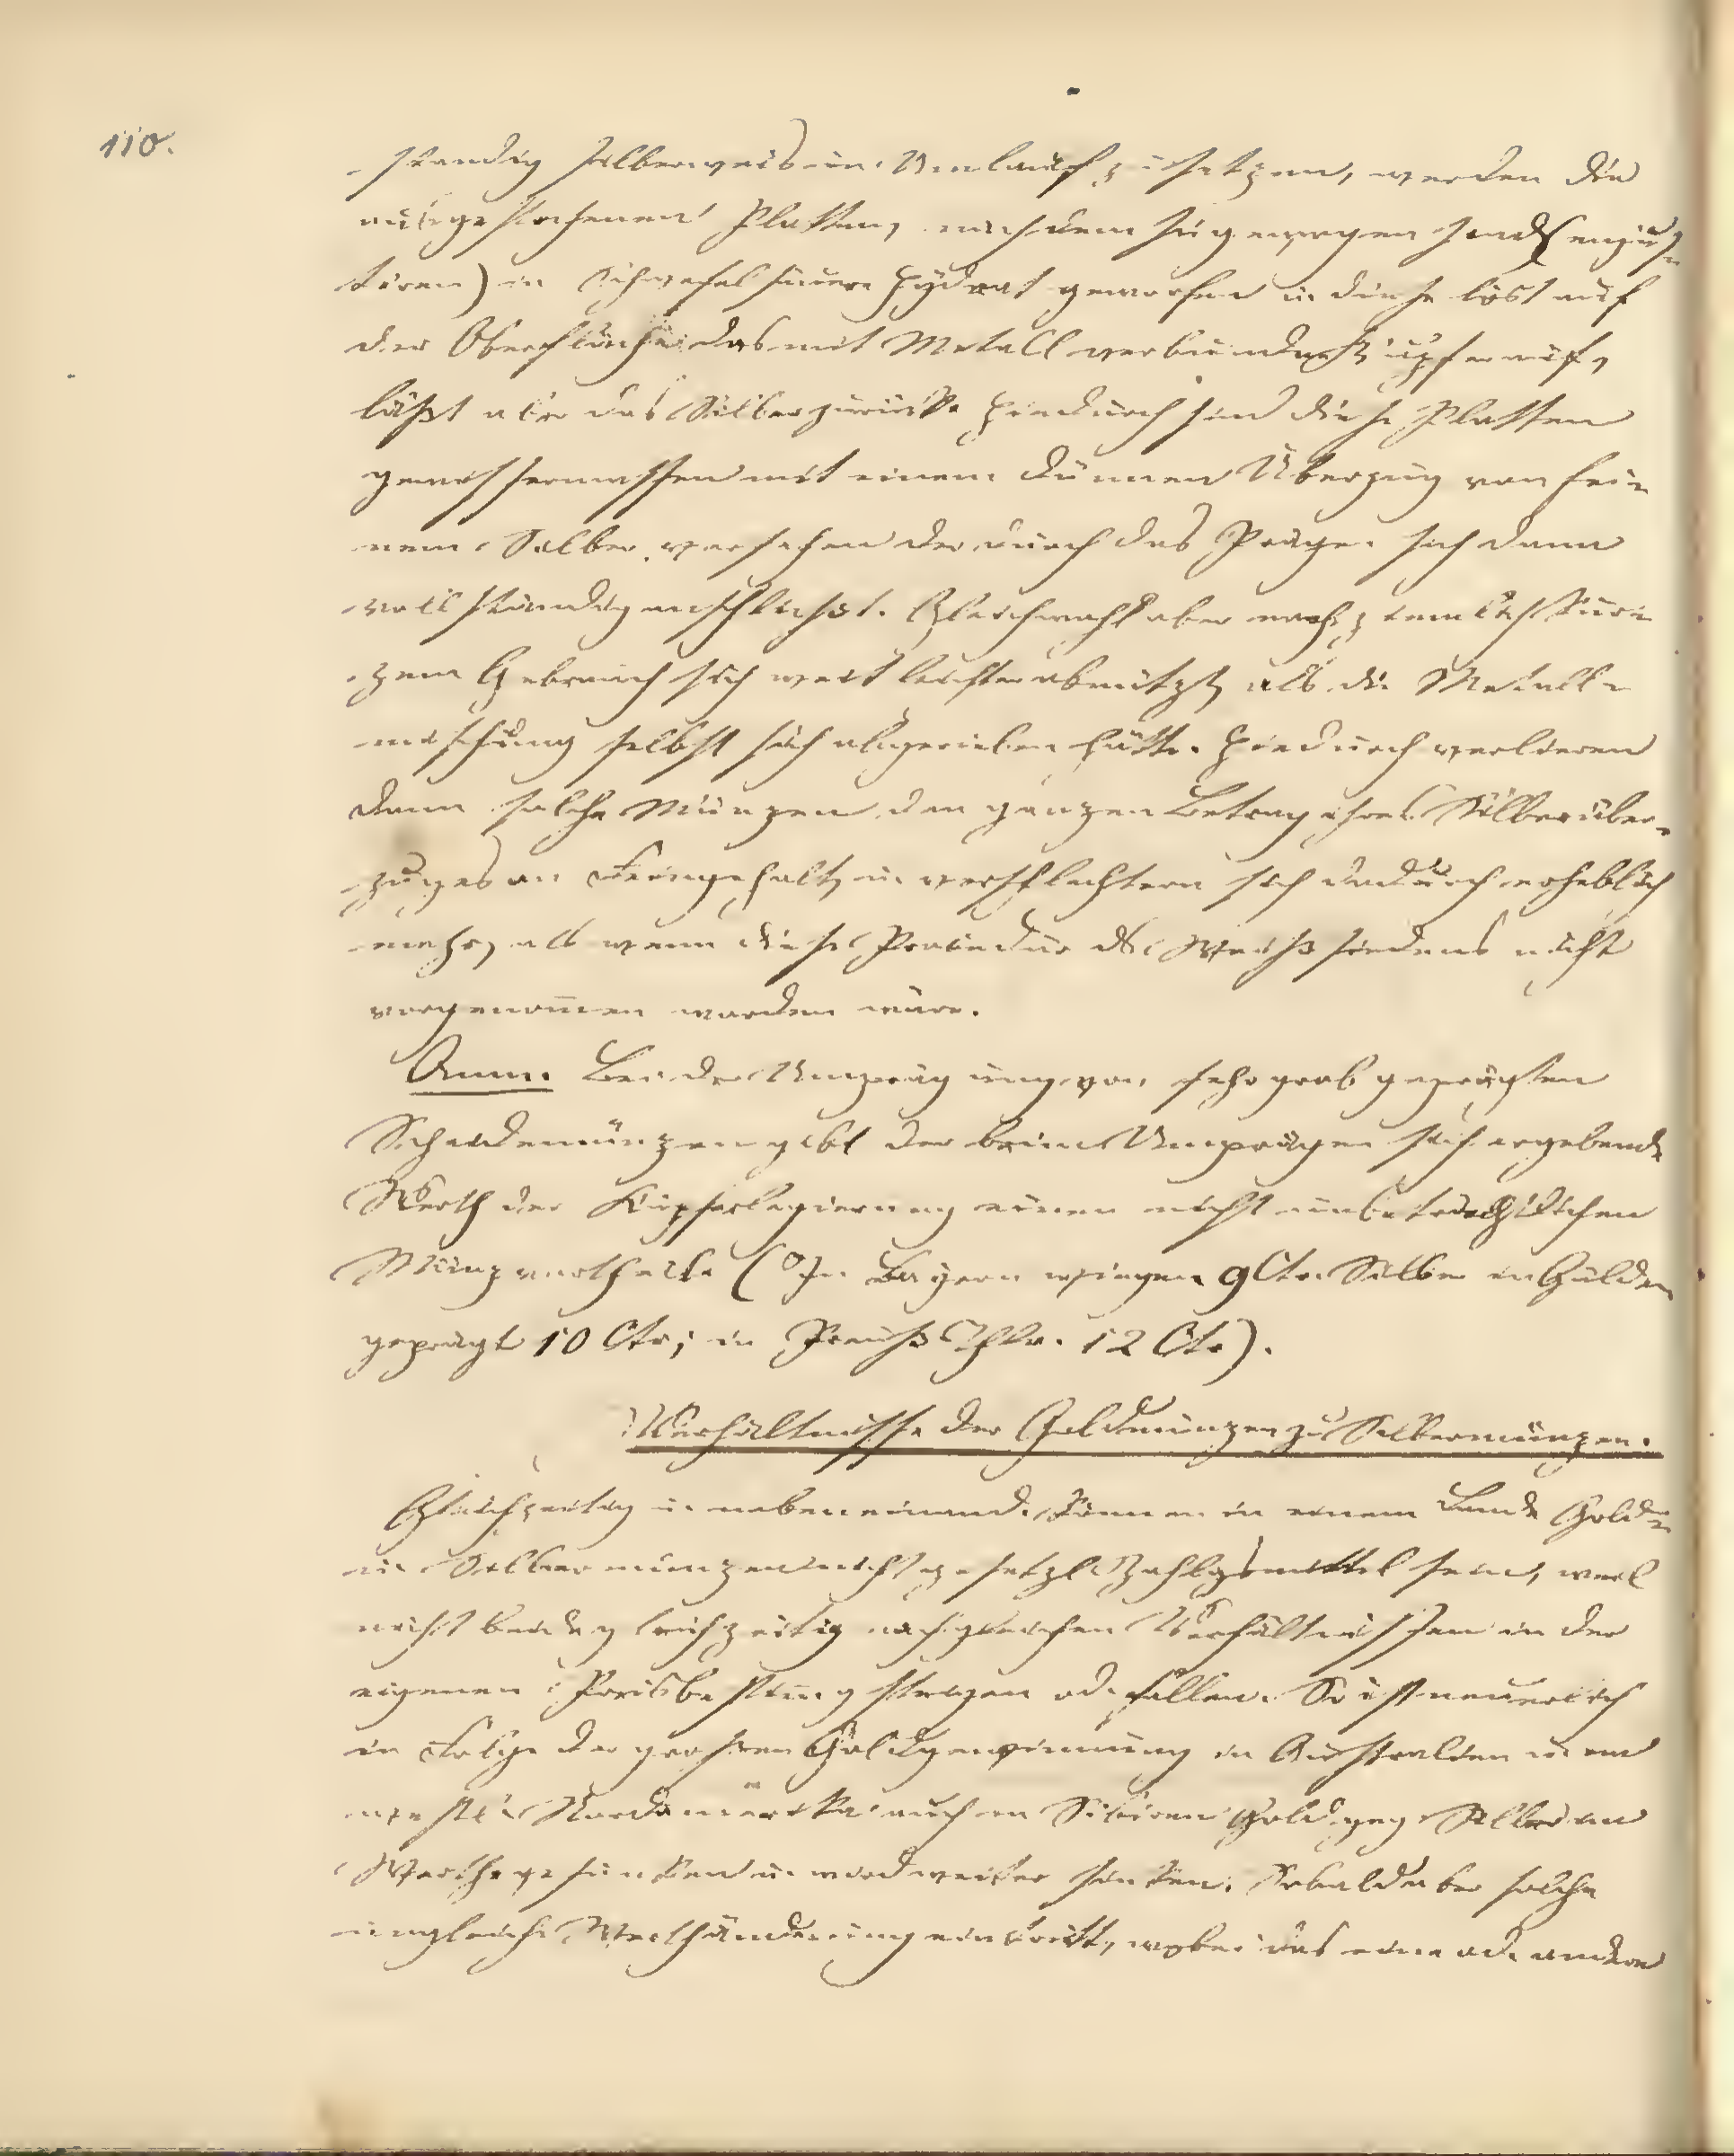 110.
ständig silberweis in Umlauf zu setzen, werden die
ausgestochenen Platten, nachdem sie gewogen sind
in Schwefelsäure Hydrat geworfen u. diese löst auf
der Oberfläche das mit Metall verbundene Kupfer auf,
läßt aber das Silber zurück. Hiedurch sind diese Platten
gewissermassen mit einem dünnen Überzug von fei-
nem Silber versehen der durch das Prägen sich dann
vollständig anschließt. Gleichwohl aber nach ziemlich kur-
zem Gebrauch sich weit leichter abnützt, als die Metall-
mischung selbst sich abgerieben hätte. Hiedurch verlieren
dann solche Münzen den ganzen Betrag ihres Silberüber-
zuges an Feingehalt, u. verschlechtern sich dadurch erheblich
mehr, als wenn diese Procedur des Weißsiedens nicht
vorgenom̄en worden wäre.
Anm. Bei der Umprägung von sehr grob geprägten
Scheidemünzen gibt der beim Umprägen sich ergebende
Werth der Kupferlegierung einen nicht unbeträchtlichen
Münzvortheile (In Bayern wiegen 9 Ctr. Silber in Gulden
geprägt 10 Ctr; in Preuß Thlr. 12 Ctr).
Verhältnisse der Goldmünzen zu Silbermünzen.
Gleichzeitig u. nebeneinand. können in einem Lande Gold-
u. Silbermünzen nicht gesetzl. Zahlgsmittel sein, weil
nicht beide gleichzeitig nach gleichen Verhältnissen in der
eigenen Preisbestim̄g steigen od. fallen. So ist neuerlich
in Folge der großen Goldgewinnung in Australien u. im
westl. Nordamerika auch in Sibirien Gold geg. Silber im
Werthe gesunken u. wird weiter sinken. Sobald aber solche
ungleiche Werthänderung eintritt, wobei das eine od. andere